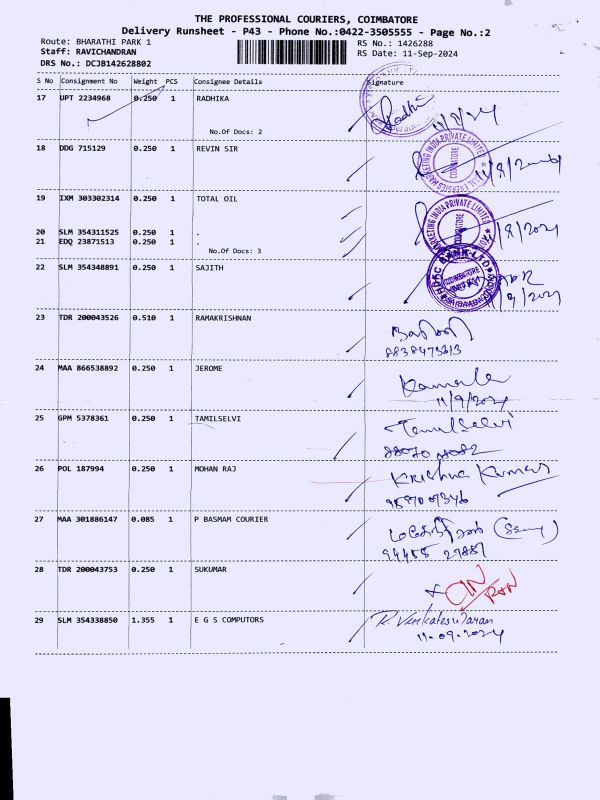 THE PROFESSIONAL COURIERS, COIMBATORE
Delivery Runsheet - P43 - Phone No.:0422-3505555 - Page No.:2
Route: BHARATHI PARK 1 RS No.: 1426288
Staff: RAVICHANDRAN RS Date: 11-Sep-2024
DRS No.: DCJB142628802
S No Consignment No Weight PCS Consignee Details Signature
17 UPT 2234968 0.250 1 RADHIKA Radhi
No.Of Docs: 2
18 DDG 715129 0.250 1 REVIN SIR
MARKETING INDIA PRIVATE LIMITED COIMBATORE
19 IXM 303302314 0.250 1 TOTAL OIL
MARKETING INDIA PRIVATE LIMITED COIMBATORE
20 SLM 354311525 0.250 1 .
21 EDQ 23871513 0.250 1 .
No.Of Docs: 3
22 SLM 354348891 0.250 1 SAJITH
HDFC BANK LTD COIMBATORE
23 TDR 200043526 0.510 1 RAMAKRISHNAN
24 MAA 866538892 0.250 1 JEROME Kamala
11/9/2024
25 GPM 5378361 0.250 1 TAMILSELVI Tamilselvi
26 POL 187994 0.250 1 MOHAN RAJ Krishna Kumar
27 MAA 301886147 0.085 1 P BASMAM COURIER
94458 27887
28 TDR 200043753 0.250 1 SUKUMAR
29 SLM 354338850 1.355 1 E G S COMPUTORS R. Venkateswaran
11.09.2024